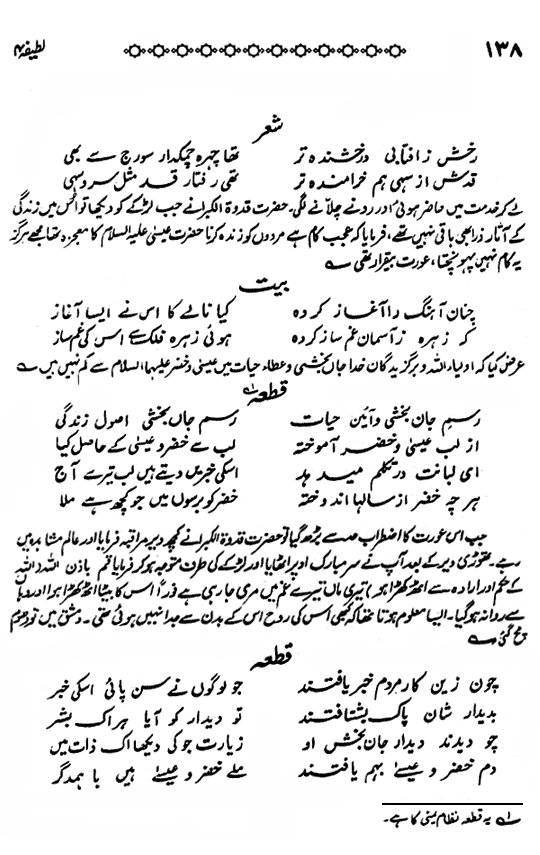 ۱۳۸
لطیفہ ۴
شعر
رخش ز آفتابی درخشندہ تر تھا چہرہ چمکدار سورج سے بھی
قدش از سہی ہم خرامندہ تر تھی رفتار قد مثل سرو سہی
لے کر خدمت میں حاضر ہوئی اور رونے چلانے لگی۔ حضرت قدوۃ الکبرا نے جب لڑکے کو دیکھا تو اس میں زندگی
کے آثار ذرا بھی باقی نہیں تھے، فرمایا کہ عجب کام ہے مردوں کو زندہ کرنا حضرت عیسیٰ علیہ السلام کا معجزہ تھا مجھے ہرگز
یہ کام نہیں پہونچتا، عورت بیقرار تھی ؎
بیت
چنان آہنگ را آغاز کردہ کیا نالے کا اس نے ایسا آغاز
کہ زہرہ ز آسمان غم ساز کردہ ہوئی زہرہ فلک سے اس کی غم ساز
عرض کیا کہ اولیاء اللہ و برگزیدگان خدا جاں بخشی و عطاء حیات میں عیسیٰ و خضر علیہما السلام سے کم نہیں ہیں ؎
قطعہ ۱؎
رسم جان بخشی و آئین حیات رسم جاں بخشی اصول زندگی
از لب عیسیٰ و خضر آموختہ لب سے خضر و عیسیٰ کے حاصل کیا
ای لبانت در تکلم میدہد اسکی خبر میں دیتے ہیں لب تیرے آج
ہر چہ خضر از سالہا اندوختہ خضر کو برسوں میں جو کچھ ہے ملا
جب اس عورت کا اضطراب حد سے بڑھ گیا تو حضرت قدوۃ الکبرا نے کچھ دیر مراقبہ فرمایا اور عالم مشاہدہ میں
رہے۔ تھوڑی دیر کے بعد آپ نے سر مبارک اوپر اٹھایا اور لڑکے کی طرف متوجہ ہو کر فرمایا قم باذن اللہ (اللہ
کے حکم اور ارادہ سے اٹھ کھڑا ہو) تیری ماں تیرے غم میں مری جا رہی ہے فوراً اس کا بیٹا اٹھ کھڑا ہوا اور وہاں
سے روانہ ہو گیا۔ ایسا معلوم ہوتا تھا کہ کبھی اس کی روح اس کے بدن سے جدا نہیں ہوئی تھی۔ دمشق میں تو دھوم
مچ گئی ؎
قطعہ
چون زین کار مردم خبر یافتند جو لوگوں نے سن پائی اسکی خبر
بدیدار شان پاک بشتافتند تو دیدار کو آیا ہر اک بشر
چو دیدند دیدار جان بخش او زیارت جو کی دیکھا اک ذات میں
دم خضر و عیسےٰ بہم یافتند ملے خضر و عیسےٰ ہیں باہمدگر
۱؎ یہ قطعہ نظام یمنی کا ہے۔